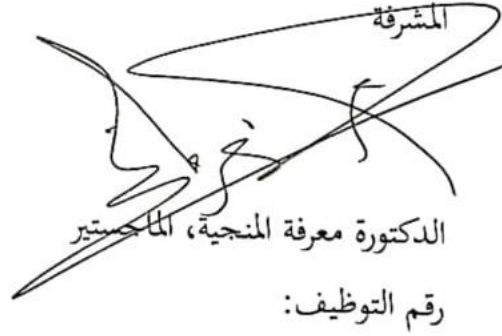 المشرفة
الدكتورة معرفة المنجية، الماجستير
رقم التوظيف: